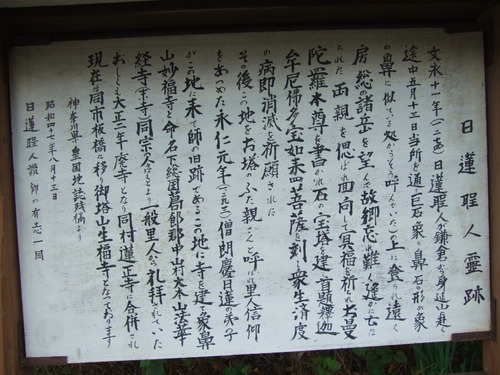 日蓮聖人霊跡
文永十一年(一二七四)日蓮聖人が鎌倉から身延山に赴く
途中五月十三日当所を通り巨石象ヶ鼻(石の形が象
の鼻に似てゐる処からそう呼んでいた)上に登られ遠く
房総の諸岳を望んで故郷忘れ難く遥かに亡く
なられた両親を偲ばれ面向して冥福を祈られお曼
陀羅本尊を書かれ石の宝塔を建て首題釈迦
牟尼佛多宝如来四菩薩を刻み衆生済度
の病即消滅を祈願された
その後この地をお塔のふた親さんと呼ばれ里人の信仰
をあつめた永仁元年(一二九三)僧朗慶日蓮の弟子
がこの地に来て師の旧跡であるこの地に寺を建て象鼻
山妙福寺と命名下総国葛飾郡中山村大本山法華
経寺(千葉)同宗の人はもとより一般里人から礼拝されていた
おしくも大正二年廃寺となり同村蓮正寺に合併され
現在は同市板橋に移り御塔山生福寺となっております
神奈川県皇国地誌残稿より
昭和四十七年八月十三日
日蓮聖人讃仰の有志一同